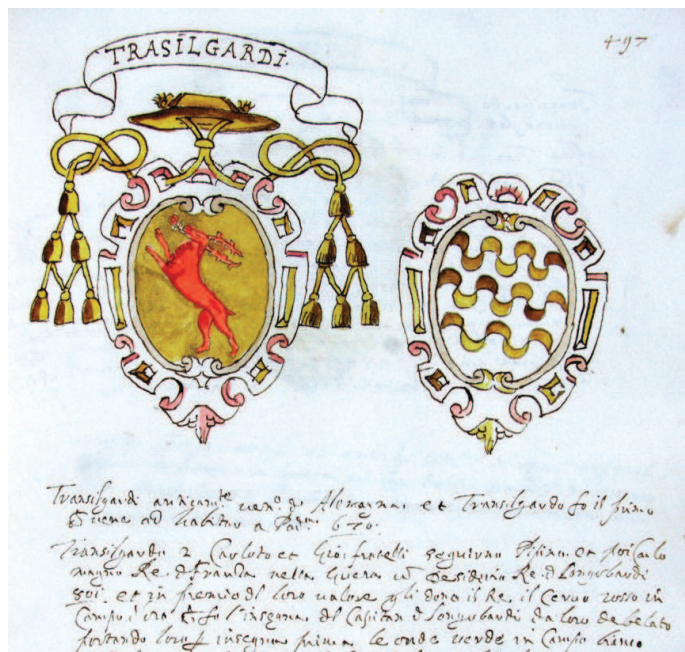 TRASILGARDI.
497
Transilgardi antigamte ven.o d' Alemagna et Transilgardo fo il primo
venne ad habitar a Pad.a 670.
Transilgardo 2 Carloto et Gio: fratelli seguirno Pipino et poi Carlo
magno Re d franza nella Guera Desiderio Re d Longobardi
801. et in premio dl loro valore gli dono il Re il Cervo rosso in
Campo d' ora fo l'insegna dl Capitan d Longobardi da loro debelato
portando loro p insegna prima le onde verde in Campo bianco